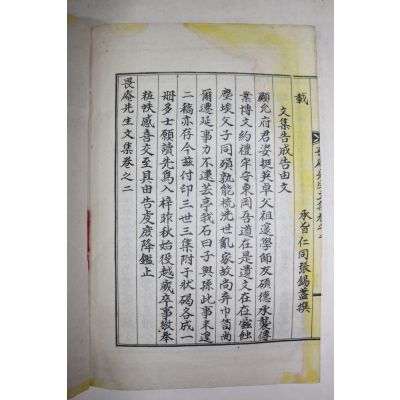 載
承旨仁同張錫藎撰
文集告成告由文
顯允府君姿挺英卓父祖是學師友碩德承襲傳
業博文約禮牢守東岡吾道在是遺文在在蠹蝕
塵埃父子同頤孰能梳洗世亂家故尚弆巾笥兩
爾遷延事力不逮芸亭我石曰子與孫此事未遑
二稿亦存今玆付印三世三集附于狀碣各成一
冊多士願讀先爲入梓昨秋始役越歲卒事敬奉
粧帙感喜交至具由告虔庶降鑑止
畏庵先生文集卷之二